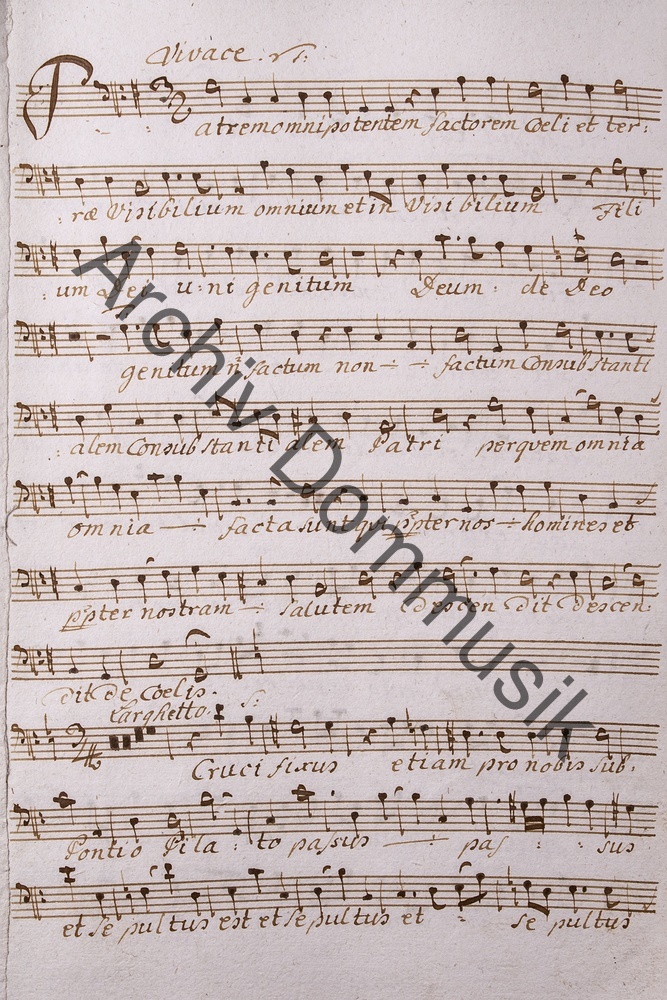 Vivace.
Patrem omnipotentem factorem Coeli et ter:
:ræ Visibilium omnium et in Visibilium Fili
um Dei u:ni genitum Deum: de Deo
genitum n: factum non factum Consubstanti
alem Consubstanti alem Patri per quem omnia
omnia facta sunt qui ppter nos homines et
ppter nostram salutem descen dit descen:
dit de Coelis.
Larghetto. S:
Cruci fixus etiam pro nobis sub.
Pontio Pila: to passus pas: : sus
et se pultus est et se pultus et se pultus
Archiv Dommusik